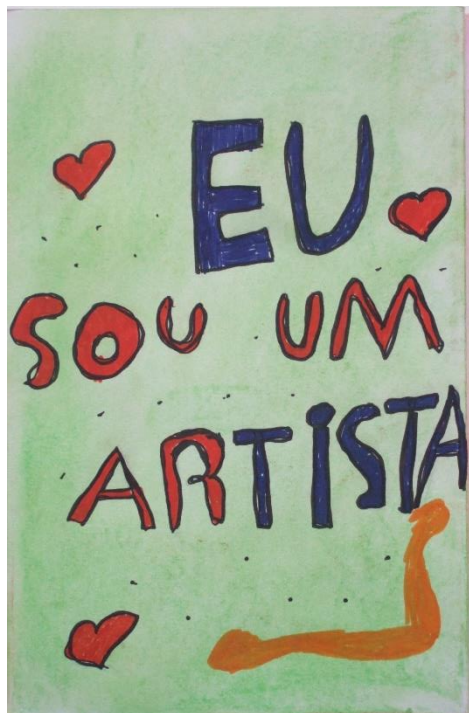 EU
SOU UM
ARTISTA